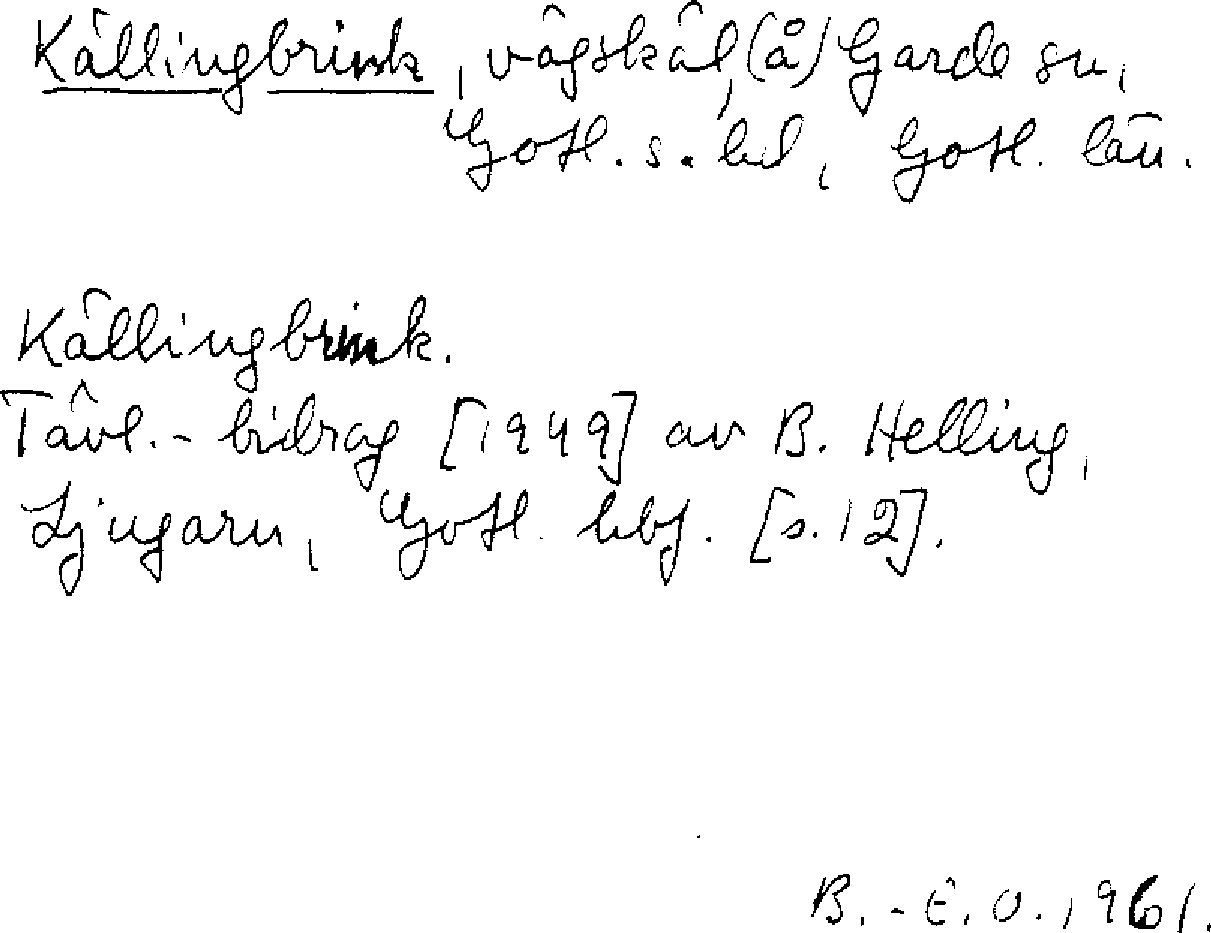 Källingbrink, vägskäl, (å) Garde sn,
Gotl. s. hd, Gotl. län.
Källingbrink.
Tävl.-bidrag [1949] av B. Helling,
Ljugarn, Gotl. hbf. [s. 12].
B.-E. O. 1961.